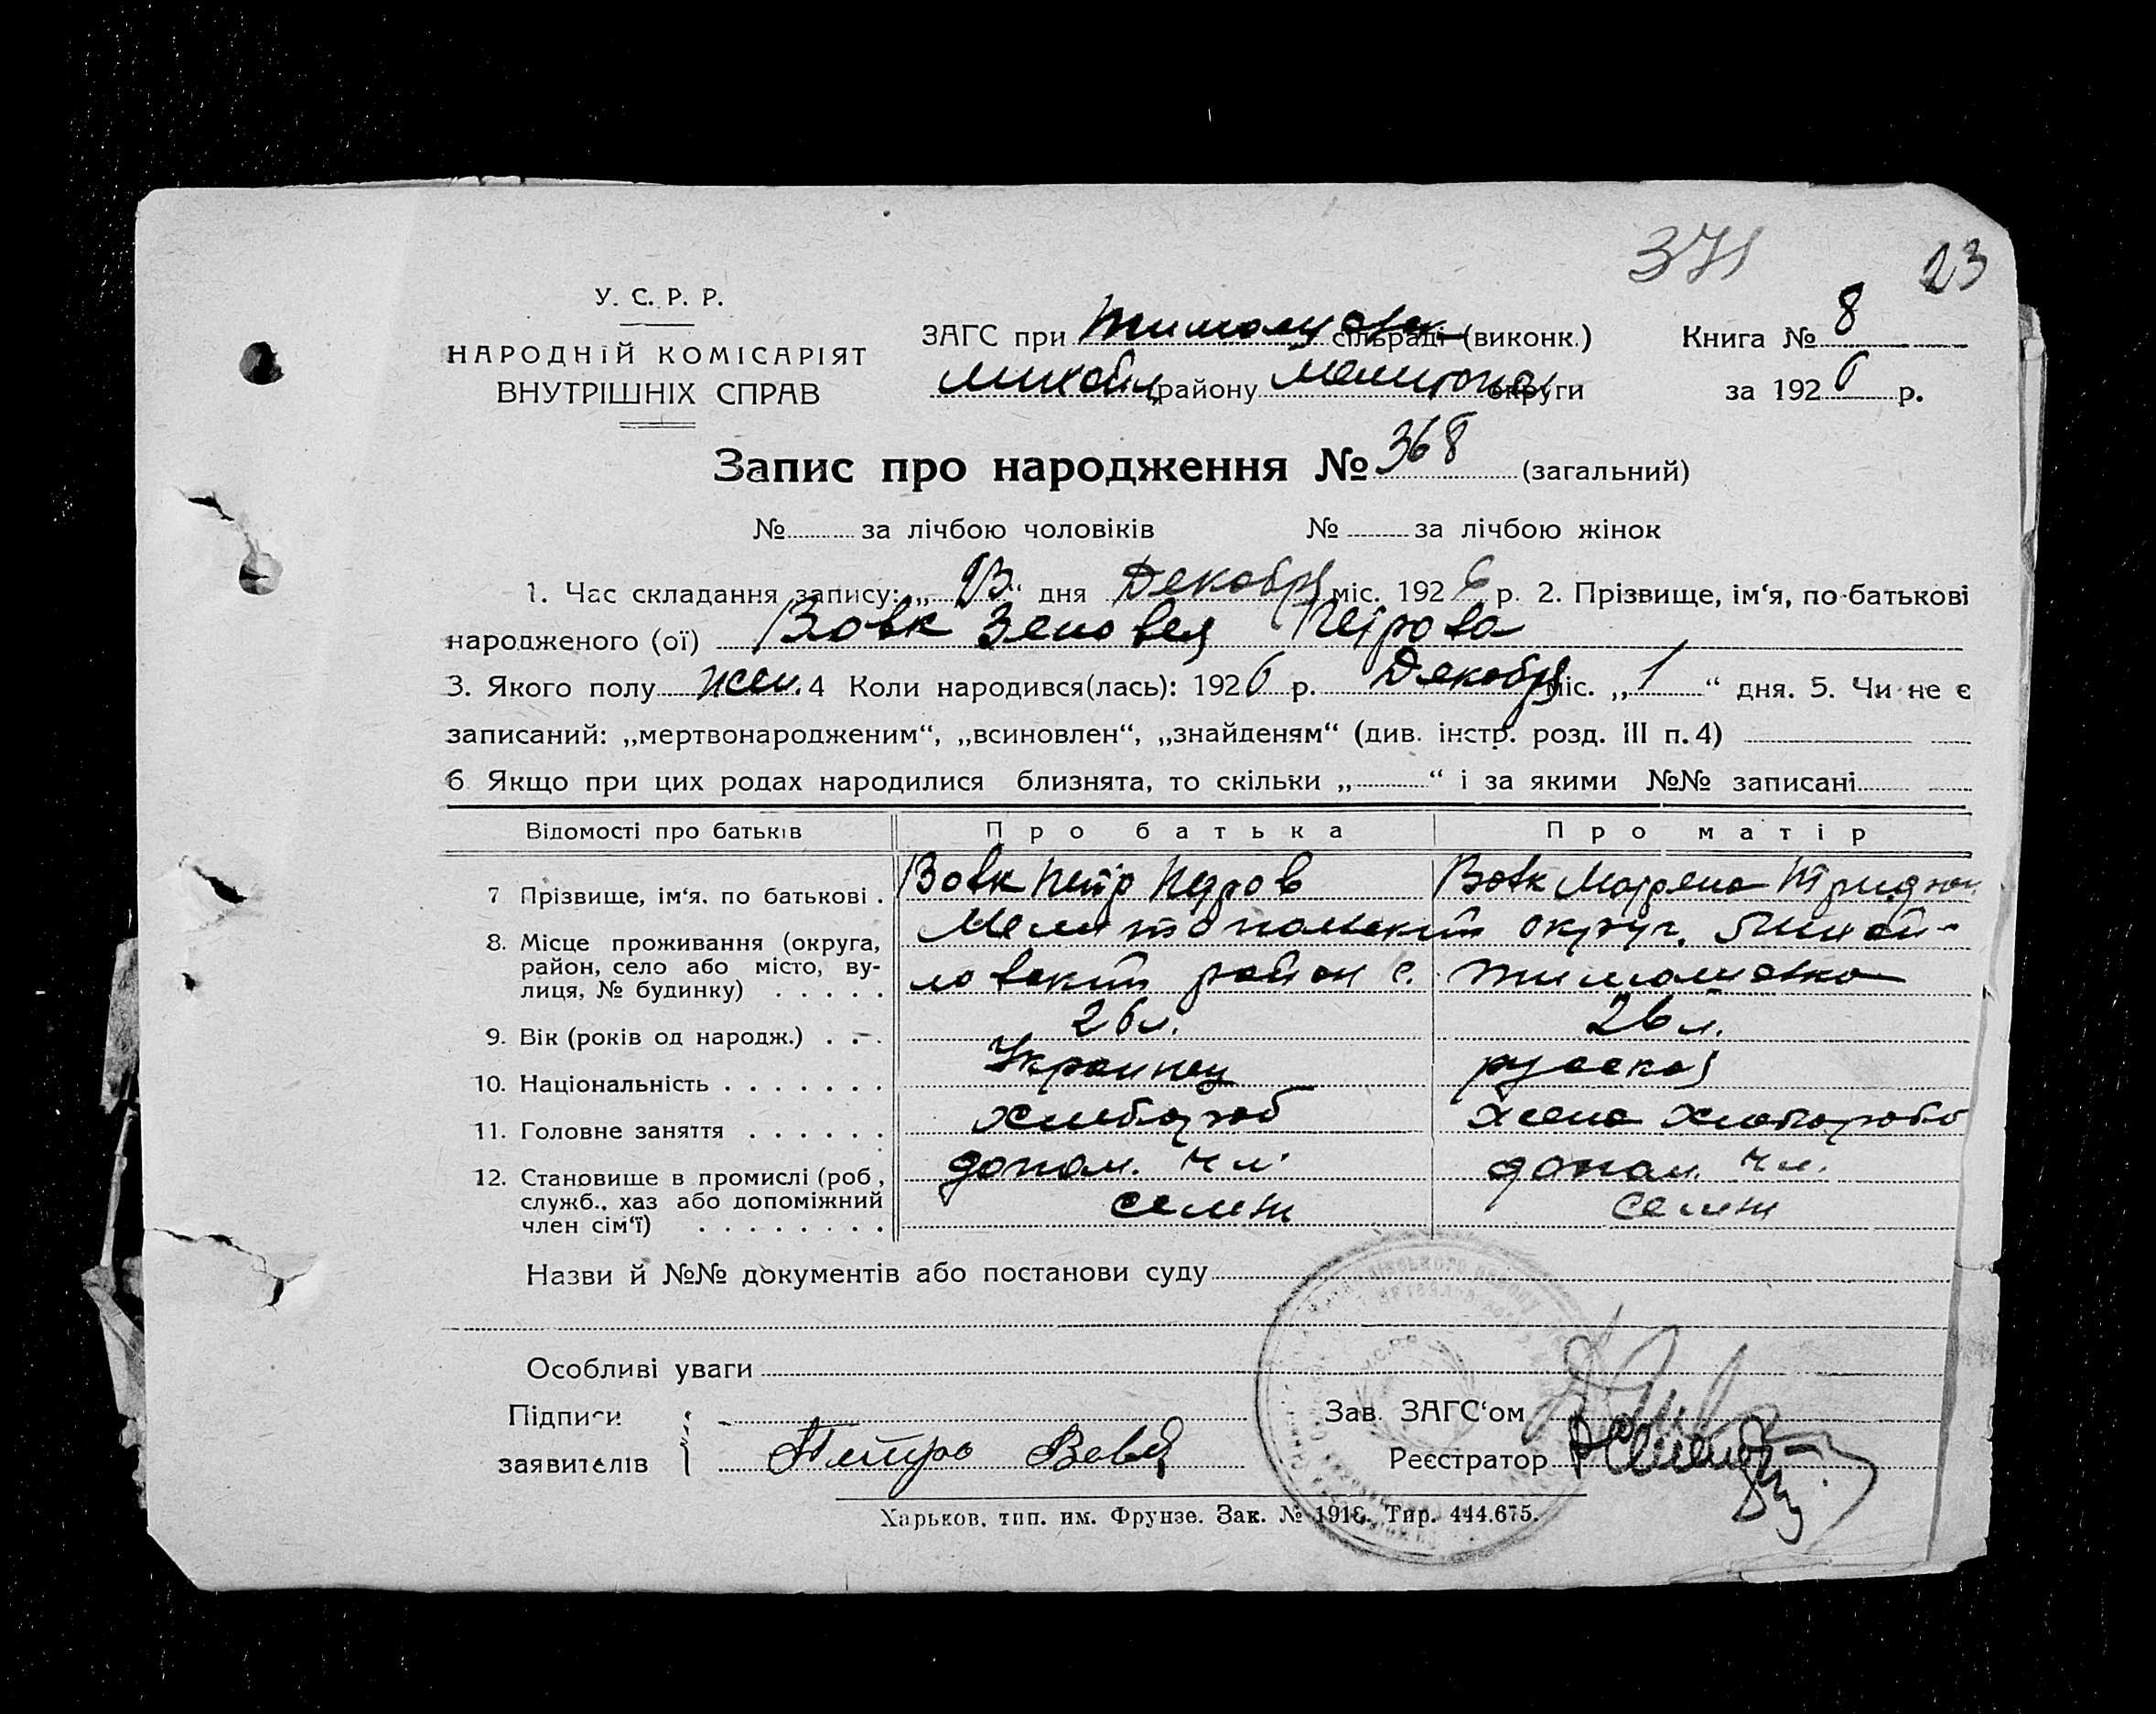 371 23
У. С. Р. Р.
НАРОДНІЙ КОМІСАРІЯТ
ВНУТРІШНІХ СПРАВ
ЗАГС при Тимошовск сільраді (виконк.)
Михайл району Мелитопол округи
Книга № 8
за 1926 р.
Запис про народження № 368 (загальний)
№ за лічбою чоловіків № за лічбою жінок
1. Час складання запису: „ “ дня Декабря міс. 1926 р. 2. Прізвище, ім‘я, по-батькові
народженого (ої) Вовк Зеновея Петрова
3. Якого полу жен. 4 Коли народився(лась): 1926 р. Декабря міс. „ 1 “ дня. 5. Чи не є
записаний: „мертвонародженим“, „всиновлен“, „знайденям“ (див. інстр. розд. III п. 4)
6 Якщо при цих родах народилися близнята, то скільки „ “ і за якими №№ записані
Відомості про батьків Про батька Про матір
7 Прізвище, ім‘я. по батькові . Вовк Петр Петров Вовк Матрена
8. Місце проживання (округа, Мелитопольский округ. Михай-
район, село або місто, ву-
лиця, № будинку) . . . . . ловский район с. Тимошовка
9. Вік (років од народж.) . . . 26 л. 26 л.
10. Національність . . . . . . . Украинец русская
11. Головне заняття . . . . . . Хлебороб Жена Хлебороба
12. Становище в промислі (роб, допом. чл. допом. чл.
служб., хаз або допоміжний семьи семьи
член сім‘ї) . . . . . . . .
Назви й №№ документів або постанови суду
Особливі уваги
Підписи
заявителів Петро Вовк
Зав. ЗАГС‘ом
Реєстратор
Харьков, тип. им. Фрунзе. Зак. № 1918. Тир. 444.675.